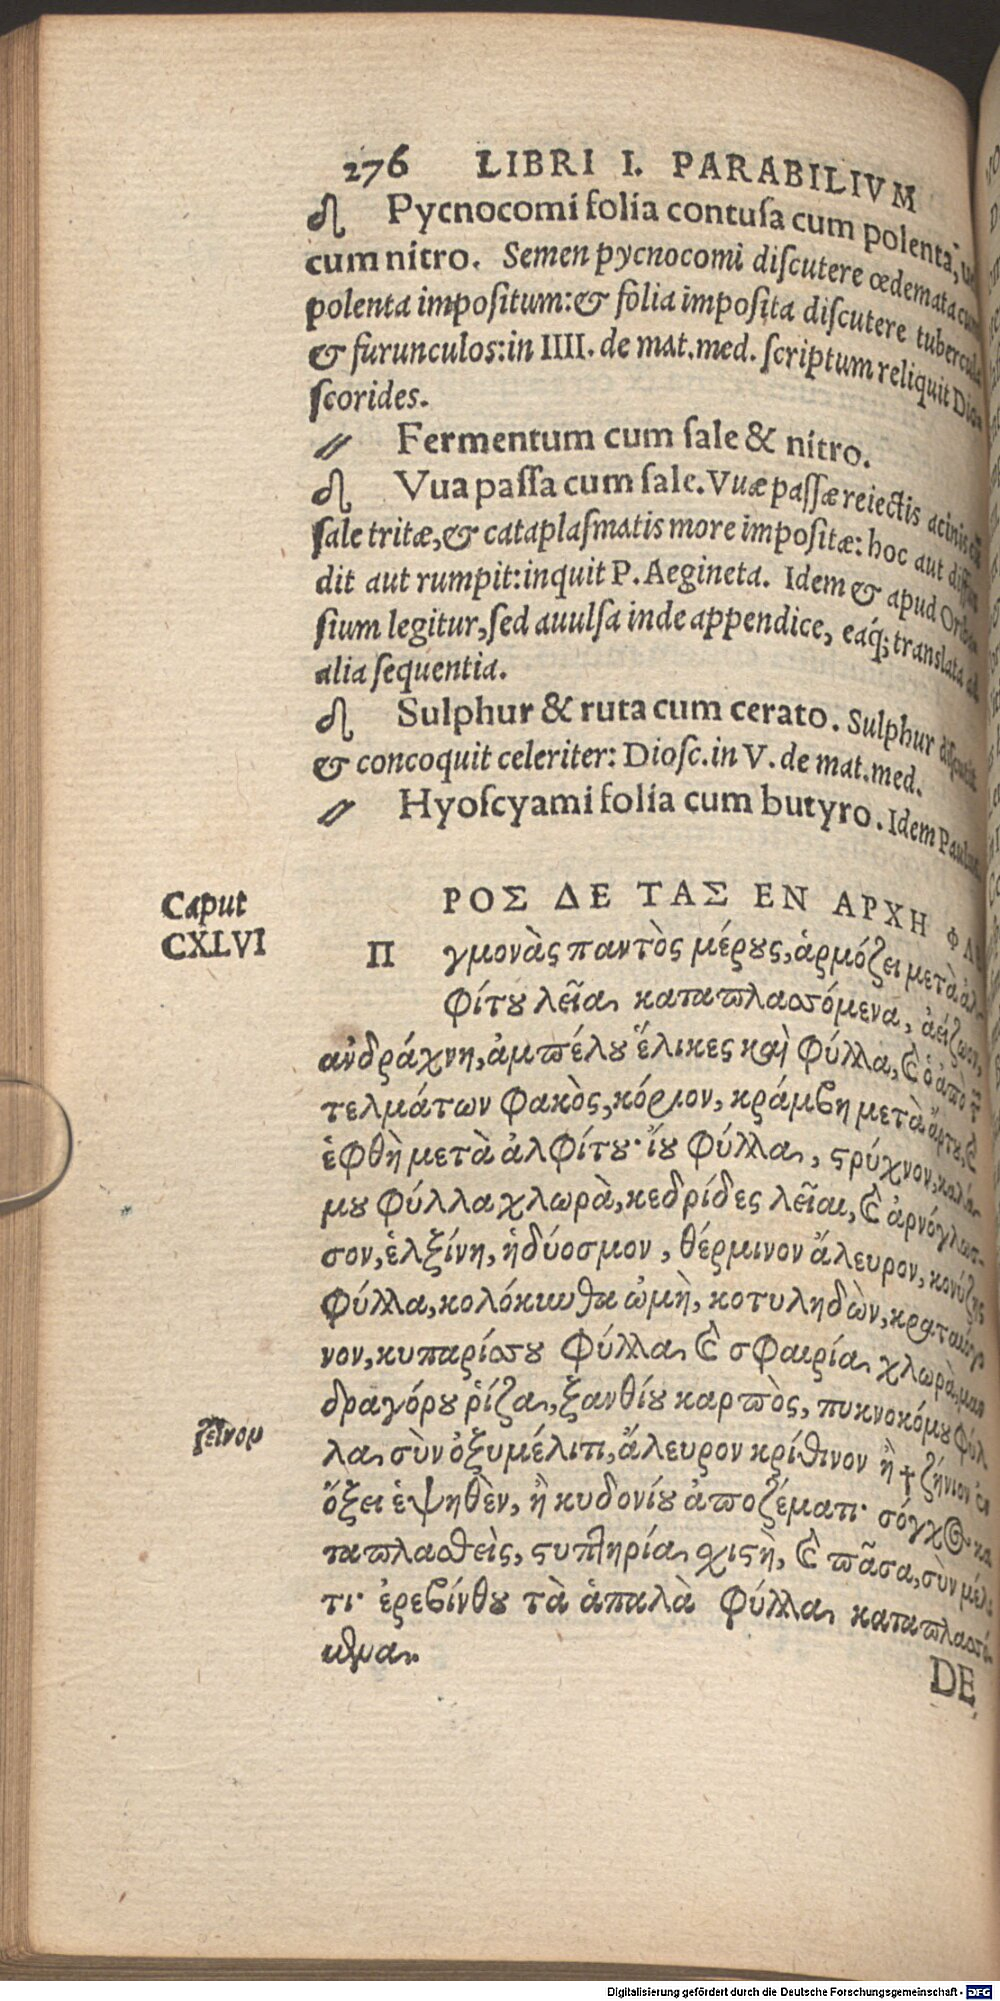 276 LIBRI I. PARABILIVM
Pycnocomi folia contuſa cum polenta,
cum nitro. Semen pycnocomi diſcutere œdemata cum
polenta impoſitum:& folia impoſita diſcutere tubercula
& furunculos:in IIII. de mat.med. ſcriptum reliquit Dio-
ſcorides.
Fermentum cum ſale & nitro.
Vua paſſa cum ſale. Vuæ paſſæ reiectis acinis cũ
ſale tritæ,& cataplaſmatis more impoſitæ: hoc aut
dit aut rumpit:inquit P. Aegineta. Idem & apud Oriba
ſium legitur,ſed auulſa inde appendice, eaq́; translata ad
alia ſequentia.
Sulphur & ruta cum cerato. Sulphur diſcutit
& concoquit celeriter: Dioſc.in V. de mat.med.
Hyoſcyami folia cum butyro. Idem Paulus.
Caput
CXLVI
ΡΟΣ ΔΕ ΤΑΣ ΕΝ ΑΡΧΗ ΦΛ
Π γμονὰς παντὸς μέρȣς,ἁρμόζει μετὰ ἀλ-
φίτȣ λεῖα καταπλασσόμενα, ἀείζωον,
ἀνδράχνη,ἀμπέλȣ ἕλικες καὶ φύλλα, καὶ ὁ ἀπὸ τ̃
τελμάτων φακὸς,κόριον, κράμβη μετὰ ἄρτȣ, καὶ
ἑφθὴ μετὰ ἀλφίτȣ· ἴȣ φύλλα, στρύχνον,καλά-
μȣ φύλλα χλωρὰ,κεδρίδες λεῖαι, καὶ ἀρνόγλωσ-
σον,ἑλξίνη, ἡδύοσμον, θέρμινον ἄλευρον, κονύζης
φύλλα,κολόκυνθα ὠμὴ, κοτυληδὼν,
νον,κυπαρίσσȣ φύλλα καὶ σφαιρία χλωρὰ,μαν
δραγόρȣ ῥίζα,ξανθίȣ καρπὸς, πυκνοκόμȣ φύλ
λα σὺν ὀξυμέλιτι,ἄλευρον κρίθινον ἢ † ζήνιον ἐν
ὄξει ἑψηθὲν, ἢ κυδονίȣ ἀποζέματι· σόγχος κα
ταπλασθεὶς, στυπτηρία σχιστὴ, καὶ πᾶσα,σὺν μέλι
τι· ἐρεβίνθȣ τὰ ἁπαλὰ φύλλα καταπλασσό-
μενα.
DE